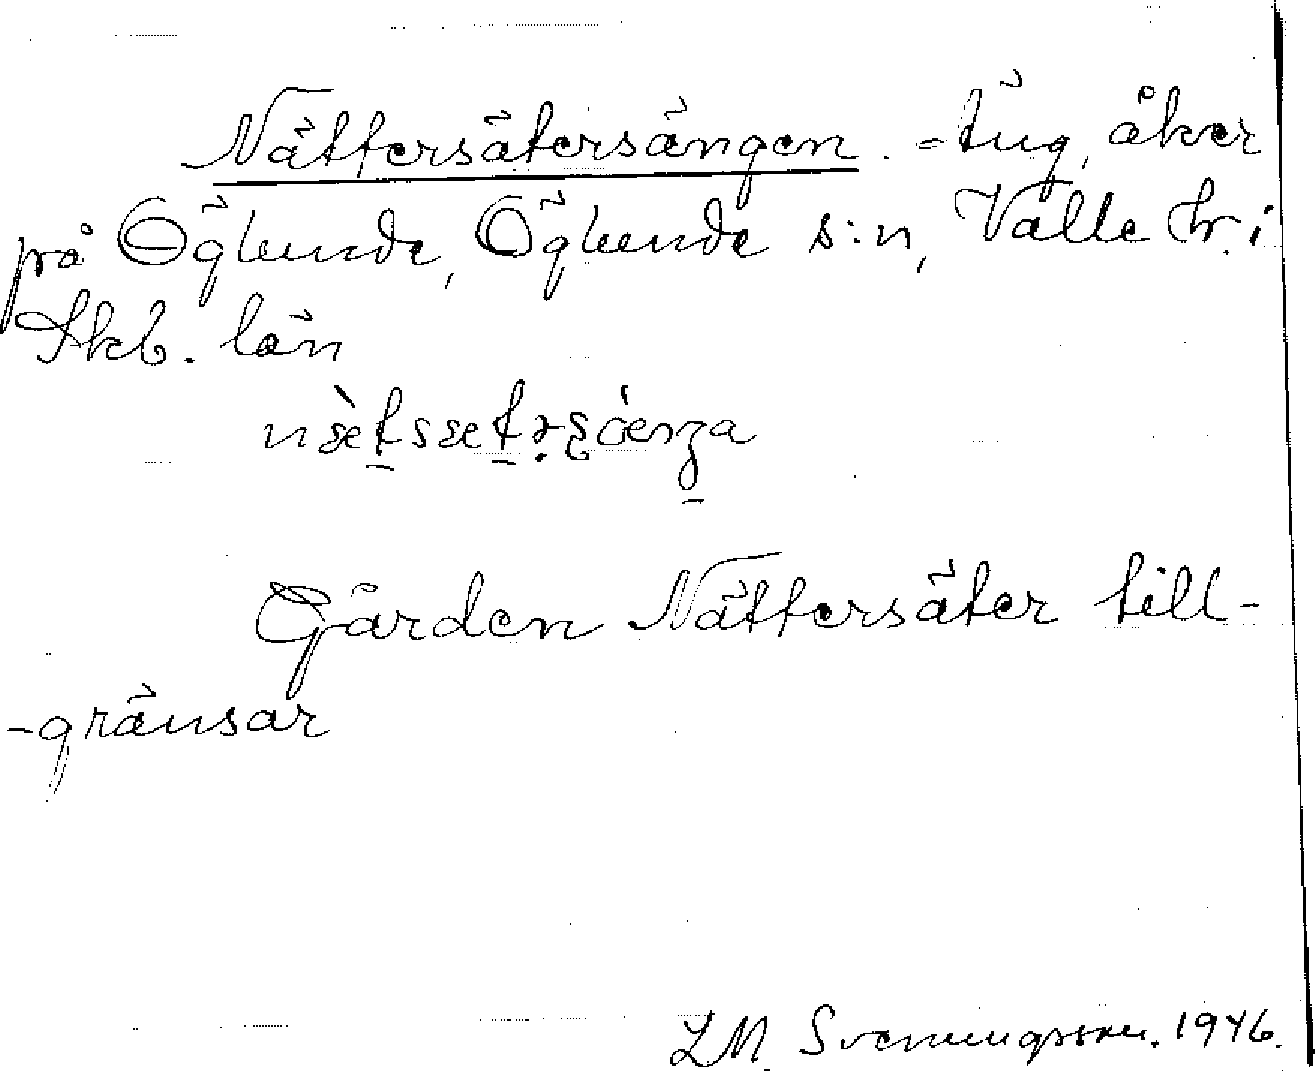 Nättersätersängen. -tug, åker
på Öglunde, Öglunde s:n, Valle hr. i
Skb. län
Gården Nättersäter till-
-gränsar
LM. Svenungsson. 1946.